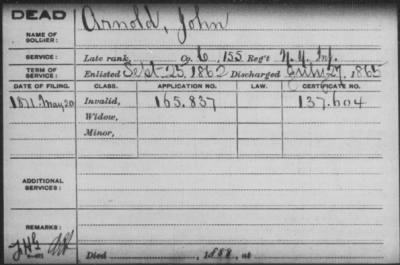 DEAD
NAME OF SOLDIER: Arnold, John
SERVICE: Late rank, Co. C, 155 Reg't N.Y. Inf.
TERM OF SERVICE: Enlisted Sept. 25, 1862 Discharged July 27, 1865
DATE OF FILING. CLASS. APPLICATION NO. LAW. CERTIFICATE NO.
1871 May 20 Invalid, 165.837 137.604
Widow,
Minor,
ADDITIONAL SERVICES:
REMARKS:
Died , 1888, at